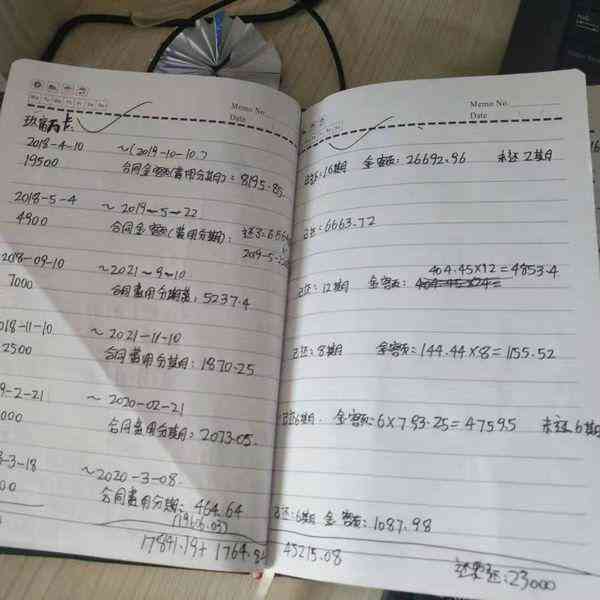 Memo No.
Date
2018-4-10 ~(2019-10-10.)
19500 合同金额(费用分期) : 8195.85.
2018-5-4 ~ 2019-5-22
4900 合同金额(费用分期) :
2019-5-
2018-09-10 ~2021-9-10
7000 合同费用分期: 5237.4
018-11-10 ~2021-11-10
2500 合同费用分期: 1870.25
9-2-21 ~ 2020-02-21
000 合同费用分期: 2073.05.
-3-18 ~2020-3-08.
00 合同费用分期: 464.64
(1966.03)
17841.19+ 1764.
Memo No.
Date
已还:16期 金额: 26692.96 未还2期
已还=6663.72
404.45×12=4853.4
已还: 12期 金额:
已还: 8期 金额: 144.44×8=1155.52
已还6期. 金额: 6×793.25=4759.5 未还6期
已还:6期 金额:1087.98
45215.08
还:23000